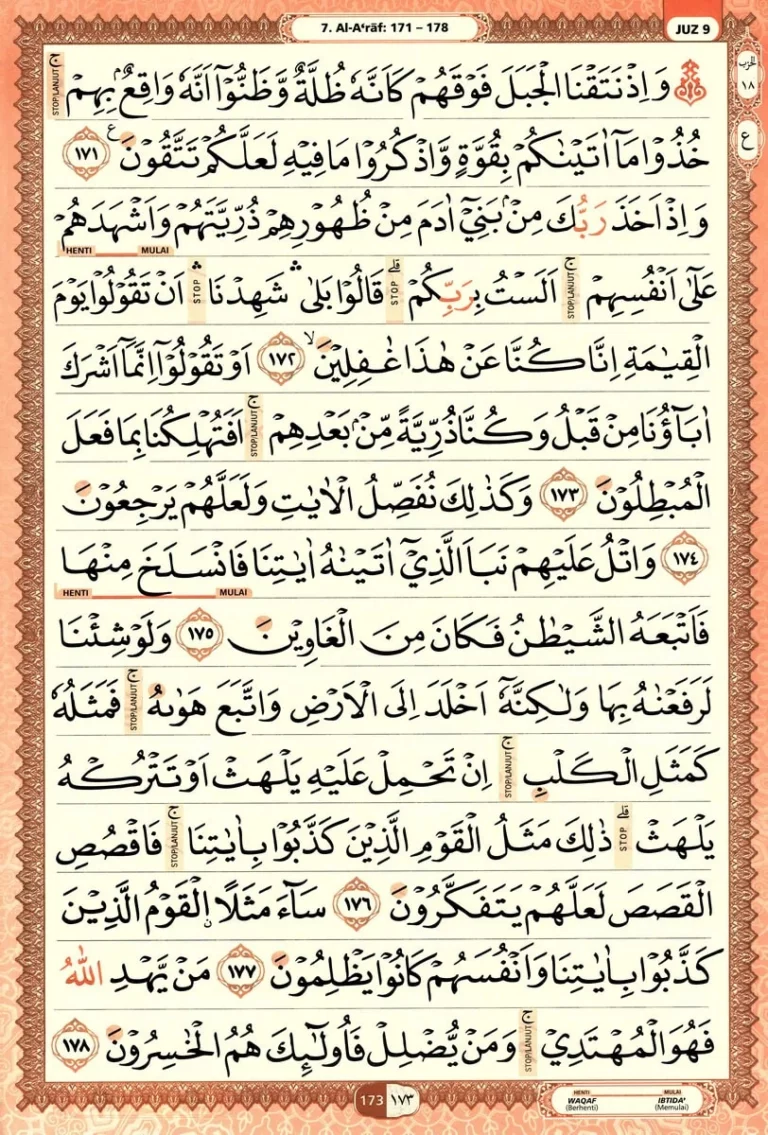 7. Al-A‘rāf: 171 – 178
JUZ 9
الحزب
١٨
ع
وَاِذْ نَتَقْنَا الْجَبَلَ فَوْقَهُمْ كَاَنَّهٗ ظُلَّةٌ وَّظَنُّوْٓا اَنَّهٗ وَاقِعٌۢ بِهِمْۚ STOP/LANJUT
خُذُوْا مَآ اٰتَيْنٰكُمْ بِقُوَّةٍ وَّاذْكُرُوْا مَا فِيْهِ لَعَلَّكُمْ تَتَّقُوْنَ ࣖ ١٧١
وَاِذْ اَخَذَ رَبُّكَ مِنْۢ بَنِيْٓ اٰدَمَ مِنْ ظُهُوْرِهِمْ ذُرِّيَّتَهُمْ وَاَشْهَدَهُمْ
MULAI HENTI
عَلٰٓى اَنْفُسِهِمْۚ STOP/LANJUT اَلَسْتُ بِرَبِّكُمْۗ STOP قَالُوْا بَلٰىۛ شَهِدْنَاۛ STOP اَنْ تَقُوْلُوْا يَوْمَ
الْقِيٰمَةِ اِنَّا كُنَّا عَنْ هٰذَا غٰفِلِيْنَۙ ١٧٢ اَوْ تَقُوْلُوْٓا اِنَّمَآ اَشْرَكَ
اٰبَاۤؤُنَا مِنْ قَبْلُ وَكُنَّا ذُرِّيَّةً مِّنْۢ بَعْدِهِمْۚ STOP/LANJUT اَفَتُهْلِكُنَا بِمَا فَعَلَ
الْمُبْطِلُوْنَ ١٧٣ وَكَذٰلِكَ نُفَصِّلُ الْاٰيٰتِ وَلَعَلَّهُمْ يَرْجِعُوْنَ
١٧٤ وَاتْلُ عَلَيْهِمْ نَبَاَ الَّذِيْٓ اٰتَيْنٰهُ اٰيٰتِنَا فَانْسَلَخَ مِنْهَا
MULAI HENTI
فَاَتْبَعَهُ الشَّيْطٰنُ فَكَانَ مِنَ الْغَاوِيْنَ ١٧٥ وَلَوْ شِئْنَا
لَرَفَعْنٰهُ بِهَا وَلٰكِنَّهٗٓ اَخْلَدَ اِلَى الْاَرْضِ وَاتَّبَعَ هَوٰىهُۚ STOP/LANJUT فَمَثَلُهٗ
كَمَثَلِ الْكَلْبِۚ STOP/LANJUT اِنْ تَحْمِلْ عَلَيْهِ يَلْهَثْ اَوْ تَتْرُكْهُ
يَلْهَثْۗ STOP ذٰلِكَ مَثَلُ الْقَوْمِ الَّذِيْنَ كَذَّبُوْا بِاٰيٰتِنَاۚ STOP/LANJUT فَاقْصُصِ
الْقَصَصَ لَعَلَّهُمْ يَتَفَكَّرُوْنَ ١٧٦ سَاۤءَ مَثَلًا ۨالْقَوْمُ الَّذِيْنَ
كَذَّبُوْا بِاٰيٰتِنَا وَاَنْفُسَهُمْ كَانُوْا يَظْلِمُوْنَ ١٧٧ مَنْ يَّهْدِ اللّٰهُ
فَهُوَ الْمُهْتَدِيْۚ STOP/LANJUT وَمَنْ يُّضْلِلْ فَاُولٰۤىِٕكَ هُمُ الْخٰسِرُوْنَ ١٧٨
173 ١٧٣
HENTI MULAI
WAQAF IBTIDA'
(Berhenti) (Memulai)